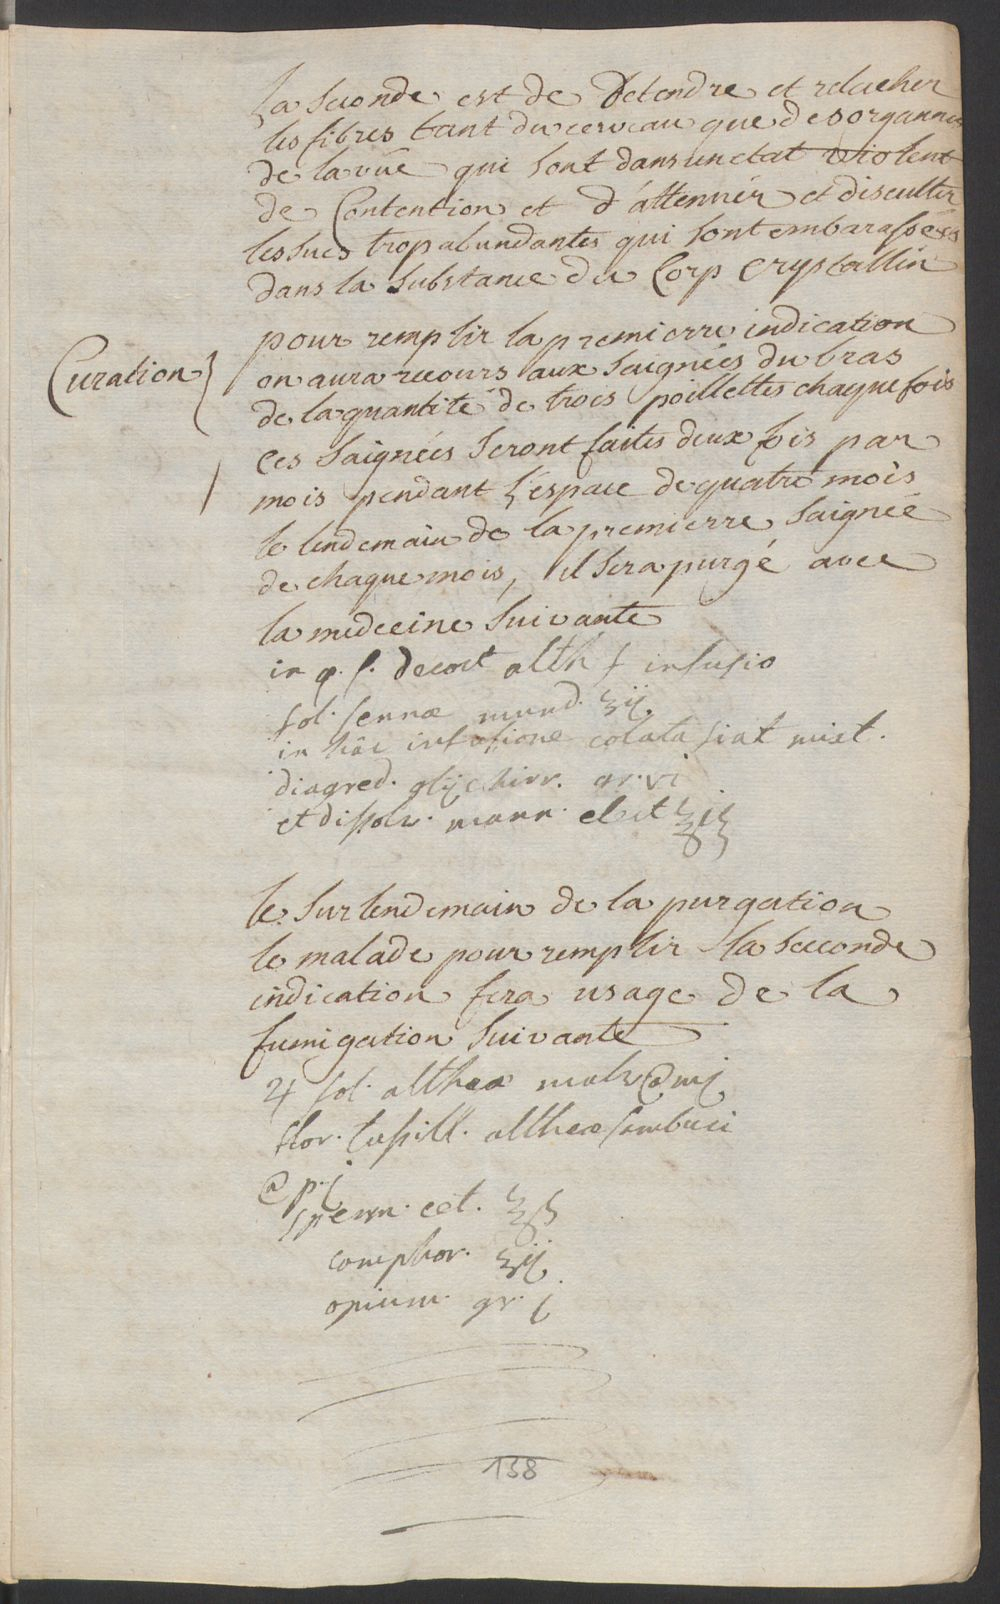 La seconde est de detendre et relacher
les fibres tant du cerveau que des organnes
de la vüe qui sont dans un etat violent
de Contention et d'attenuér et discutter
les sucs trop abundantes qui sont embarassées
dans la substance du Corp crystallin
pour remplir la premierre indication
Curation on aura recours aux saignées du bras
de la quantité de trois poillettes chaque fois
ces saignées seront faites deux fois par
mois pendant l'espace de quatre mois
le lendemain de la premierre saignée
de chaque mois, il sera purgé avec
la medecine suivante
in q. s. decoct alth f infusio
fol. sennæ mund. ʒij.
in hâc infusione colata fiat mixt.
diagred. glijchirr. gr. vi
et dissolv. mann. elect ℥ij
le surlendemain de la purgation
le malade pour remplir la seconde
indication fera usage de la
fumigation suivante
♃ fol. altheæ malv @ mj
flor. tussill. altheæ sambuci
@ p. j
sperm. cet. ℥ß
camphor. ʒij
opium. gr. j
138